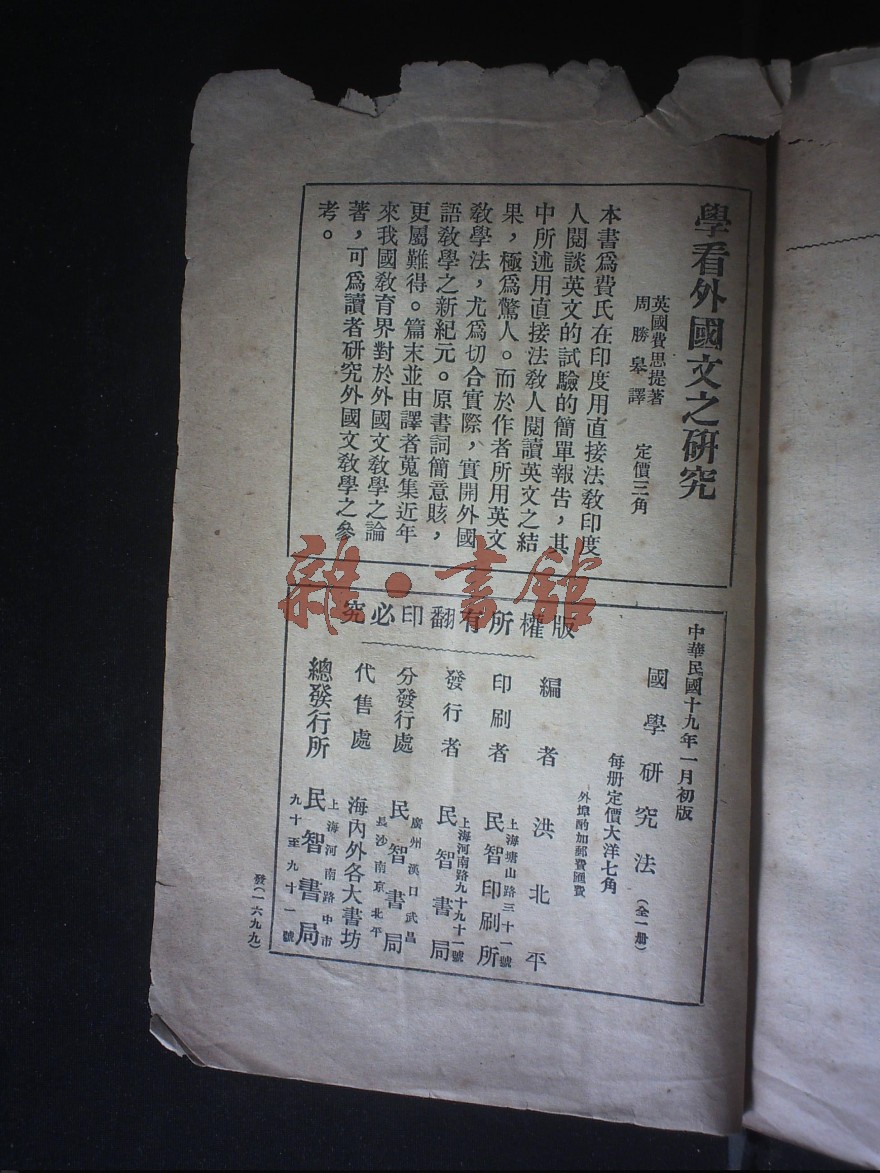 學看外國文之研究
英國費思提著
周勝皋譯
定價三角
本書爲費氏在印度用直接法敎印度
人閱談英文的試驗的簡單報告，其
中所述用直接法敎人閱讀英文之結
果，極爲驚人。而於作者所用英文
敎學法，尤爲切合實際，實開外國
語敎學之新紀元。原書詞簡意賅，
更屬難得。篇末並由譯者蒐集近年
來我國敎育界對於外國文敎學之論
著，可爲讀者研究外國文敎學之參
考。
雜·書館
版權所有翻印必究
中華民國十九年一月初版
國學研究法（全一册）
每册定價大洋七角
外埠酌加郵費匯費
編者 洪北平
印刷者 上海塘山路三十一號
民智印刷所
發行者 上海河南路九十九十一號
民智書局
分發行處 廣州漢口武昌
民智書局
長沙南京北平
代售處 海內外各大書坊
總發行所 上海河南路中市
民智書局
九十至九十一號
發（一六九九）